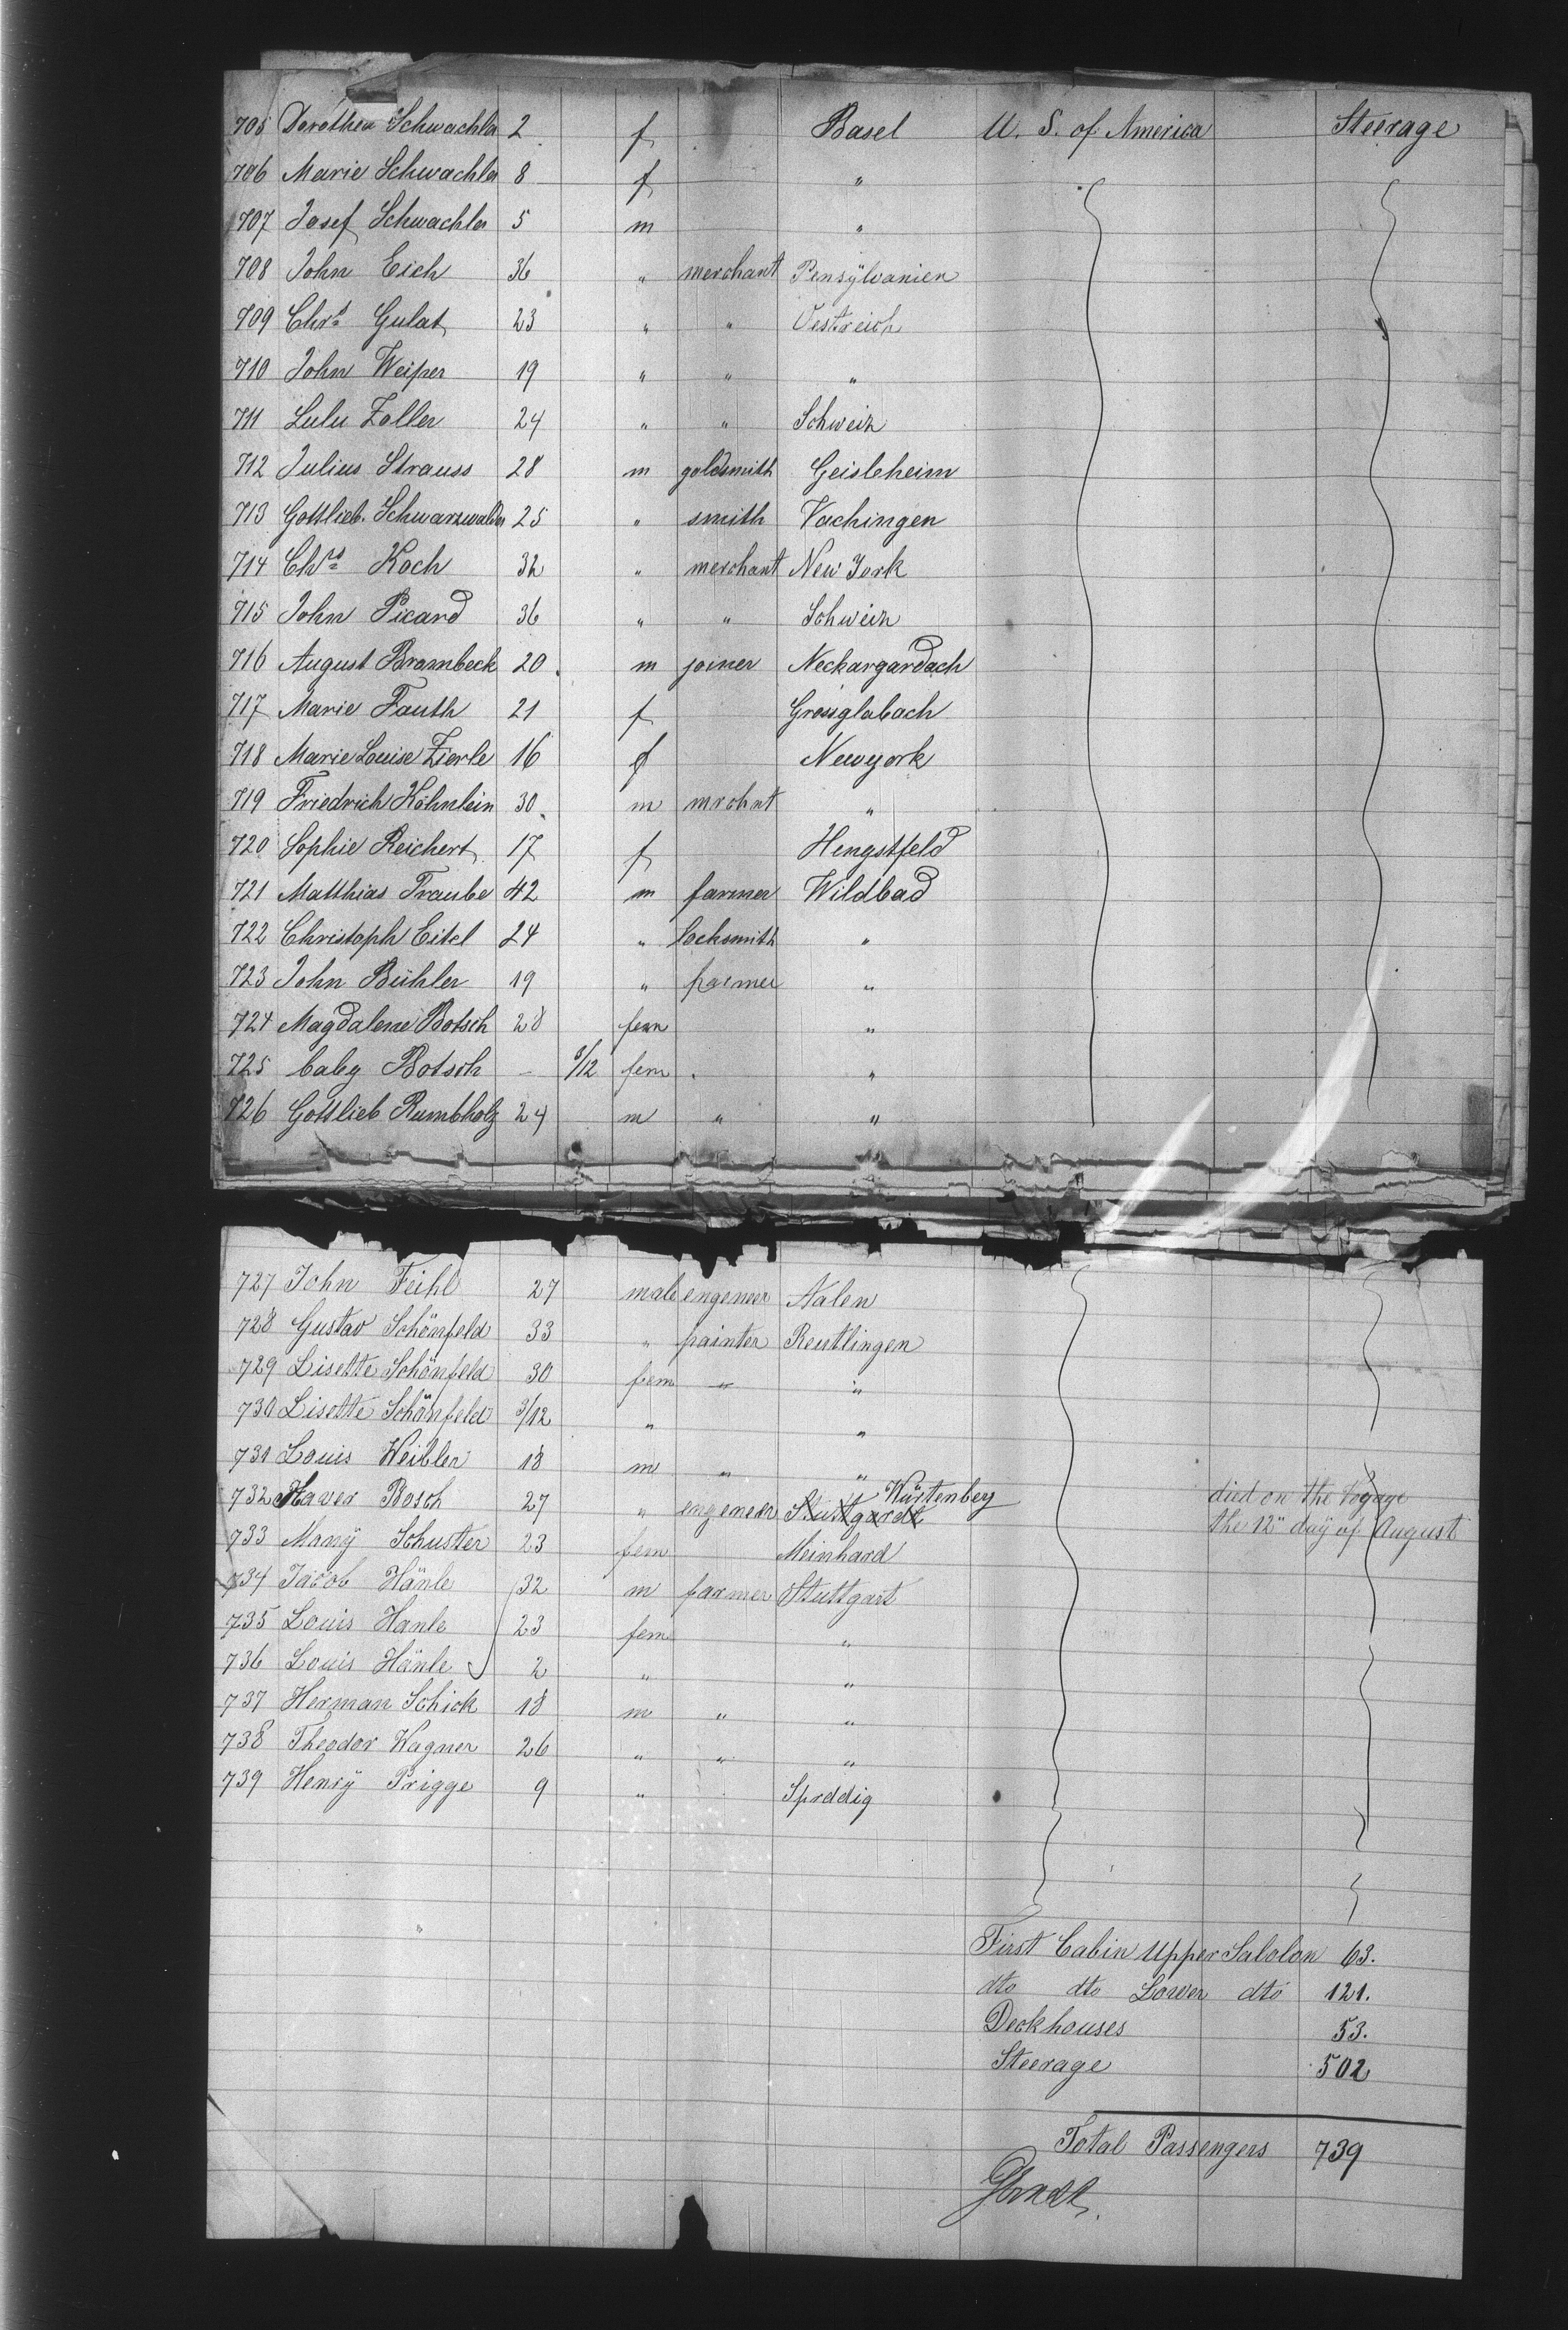 705 Dorothea Schwachler 2 f Basel U. S. of America Steerage
706 Marie Schwachler 8 f "
707 Josef Schwachler 5 m "
708 John Eich 36 " merchant Pensÿlvanien
709 Chrs Gulat 23 " " Oestreich
710 John Weiper 19 " " "
711 Lulu Zoller 24 " " Schweiz
712 Julius Strauss 28 m goldsmith Geisleheim
713 Gottlieb Schwarzwalder 25 " smith Vachingen
714 Chrs Koch 32 " merchant New York
715 John Picard 36 " " Schweiz
716 August Brambeck 20 m joiner Neckargardach
717 Marie Fauth 21 f Grossglabach
718 Marie Louise Zierle 16 f Newyork
719 Friedrich Köhnlein 30 m mrchnt "
720 Sophie Reichert 17 f Hengstfeld
721 Matthias Traube 42 m farmer Wildbad
722 Christoph Eitel 24 " locksmith "
723 John Bühler 19 " farmer "
724 Magdalene Botsch 28 fem "
725 baby Botsch - 8/12 fem "
726 Gottlieb Rumbholz 24 m " "
727 John Feihl 27 male engeneer Aalen
728 Gustav Schönfeld 33 " painter Reutlingen
729 Lisette Schönfeld 30 fem " "
730 Lisette Schönfeld 3/12 " "
731 Louis Weibler 18 m " "
732 Xaver Bosch 27 " engeneer Stuttgardt Würtenberg died on the Voyage
the 12" day of August
733 Manÿ Schuster 23 fem Meinhard
734 Jacob Hänle 32 m farmer Stuttgart
735 Louis Hanle 23 fem "
736 Louis Hänle 2 " "
737 Herman Schick 18 m " "
738 Theodor Wagner 26 " " "
739 Henrÿ Prigge 9 " Spreddig
First Cabin Upper Sabolon 63.
dto dto Lower dto 121.
Deckhouses 53.
Steerage 502
Total Passengers 739